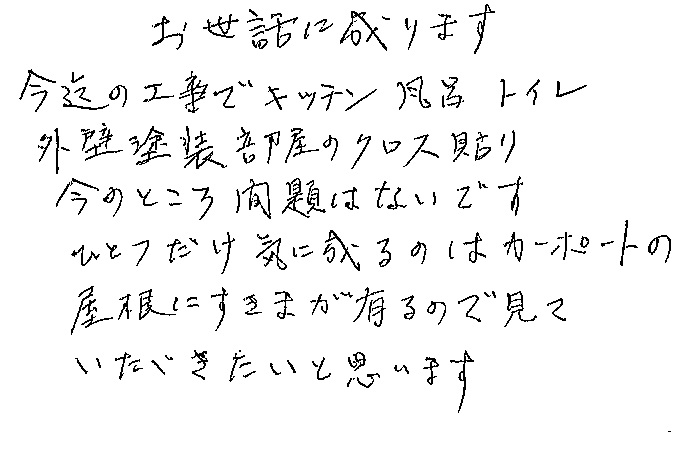 お世話に成ります
今迄の工事でキッチン 風呂 トイレ
外壁塗装部屋のクロス貼り
今のところ問題はないです
ひとつだけ気に成るのはカーポートの
屋根にすきまが有るので見て
いただきたいと思います